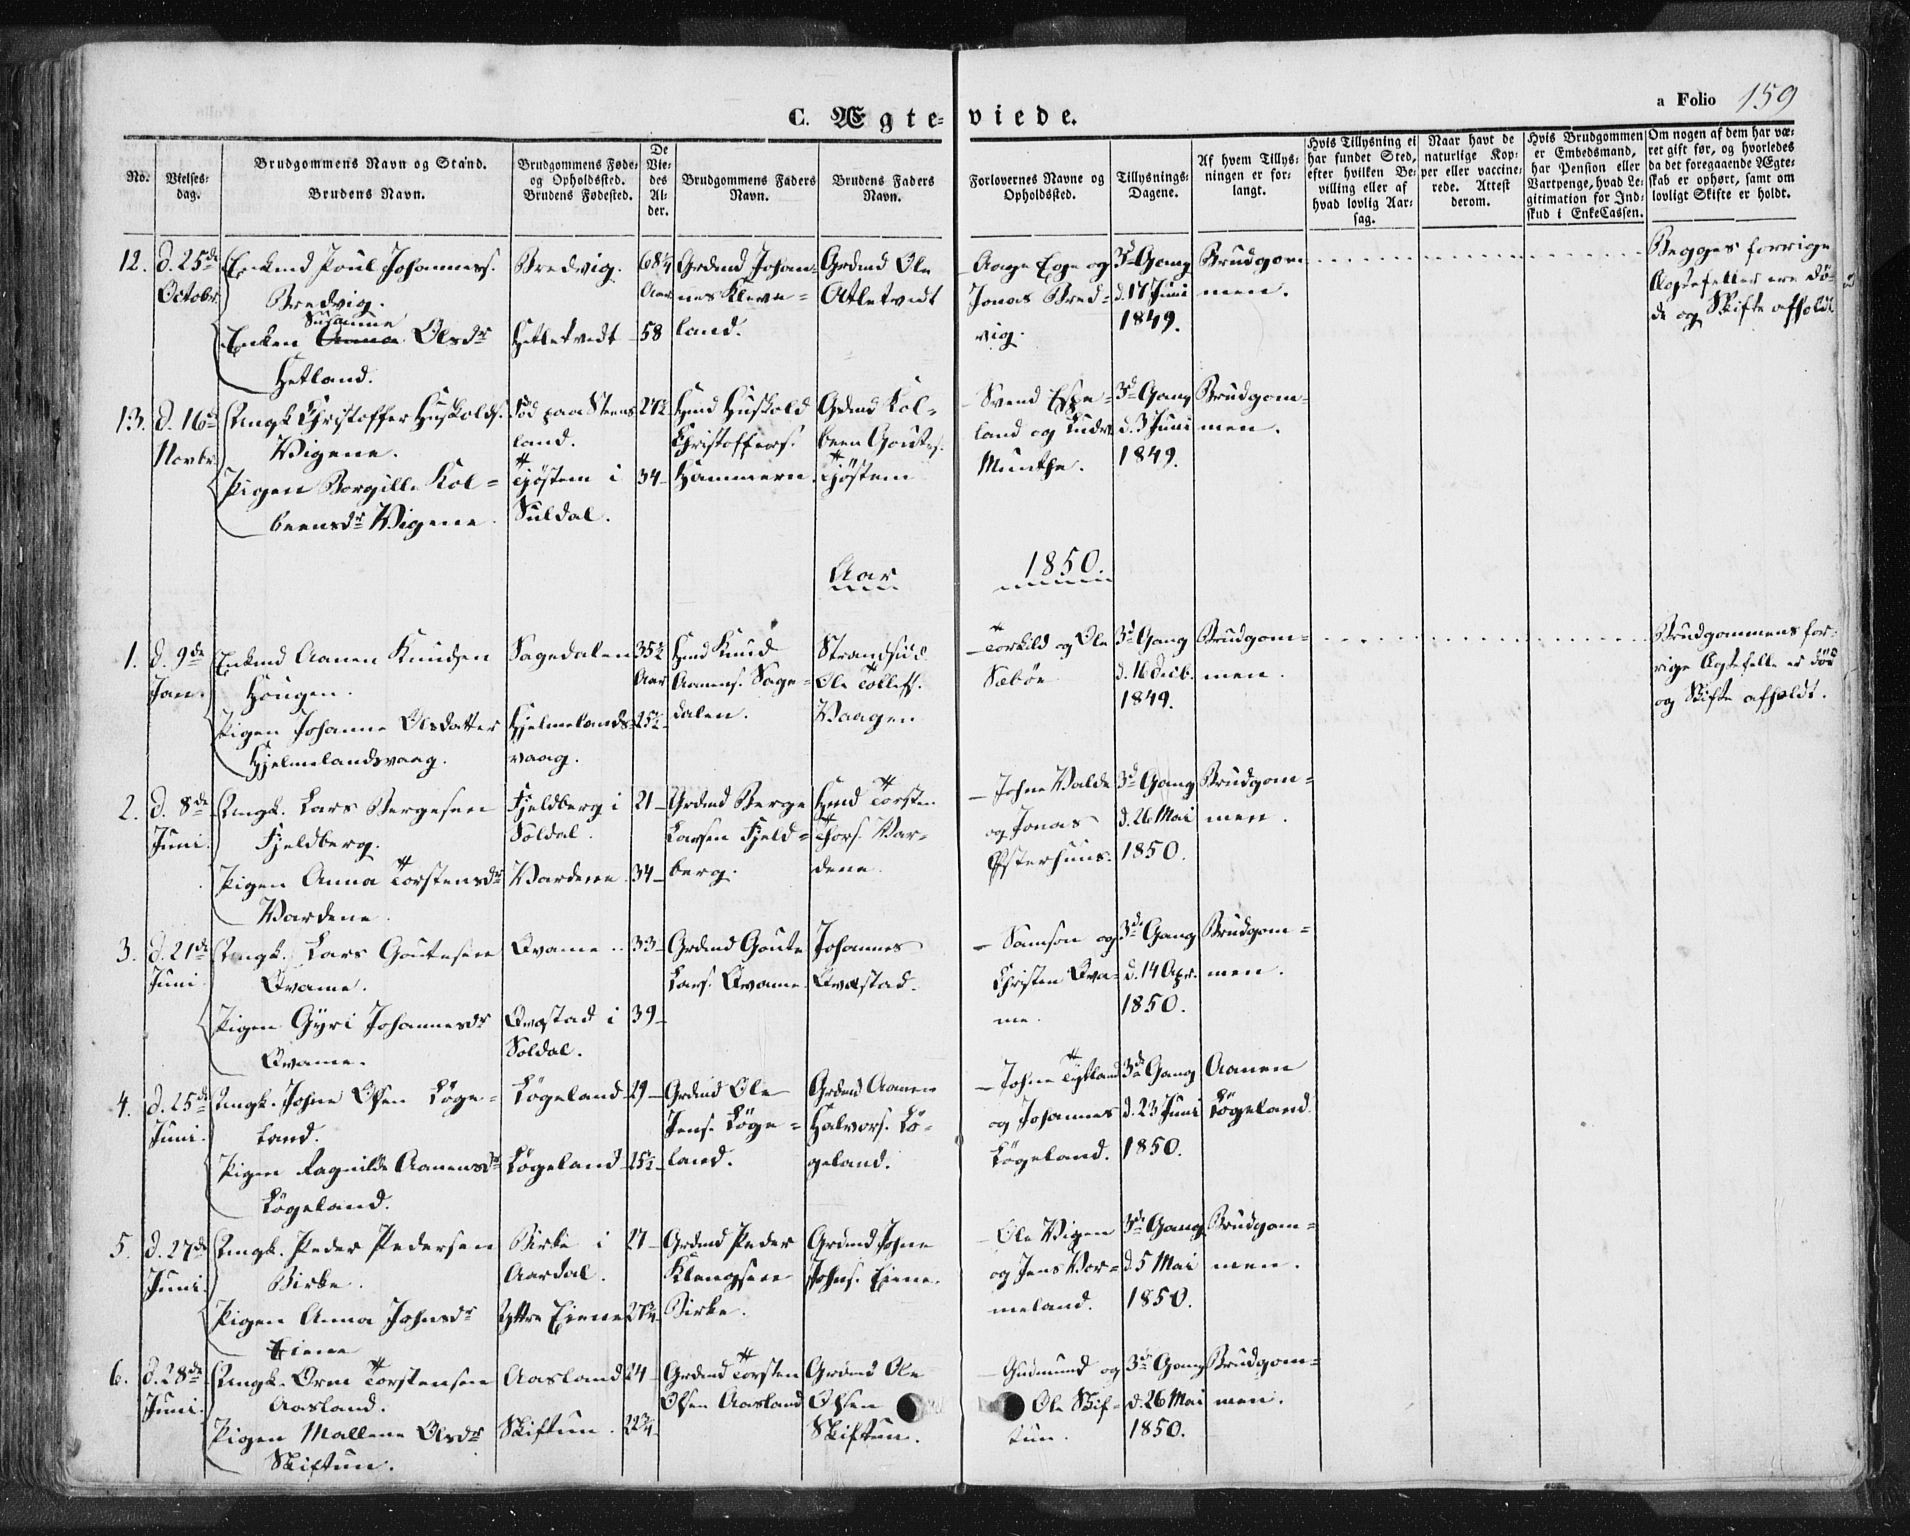 a Folio 159
C. Ægteviede.
No.
Vielses-
dag.
Brudgommens Navn og Stand.
Brudens Navn.
Brudgommens Føde-
og Opholdssted.
Brudens Fødested.
De
Vie-
des
Al-
der.
Brudgommens Faders
Navn.
Brudens Faders
Navn.
Forlovernes Navne og
Opholdssted.
Tillysnings-
Dagene.
Af hvem Tillys-
ningen er for-
langt.
Hvis Tillysning ei
har fundet Sted,
efter hvilken Be-
villing eller af
hvad lovlig Aar-
sag.
Naar havt de
naturlige Kop-
per eller vaccine-
rede. Attest
derom.
Hvis Brudgommen
er Embedsmand,
har Pension eller
Vartpenge, hvad Le-
gitimation for Ind-
skud i EnkeCassen.
Om nogen af dem har væ-
ret gift før, og hvorledes
da det foregaaende Ægte-
skab er ophørt, samt om
lovligt Skifte er holdt.
12.
d. 25de
Octobr.
Enkmd Poul Johanness.
Bredvig.
Susanne
Enken Anna Olsdr
Hetland.
Bredvig.
Hetletvedt
68¼
Aar
58
Grdmd Johan-
nes Kleve-
land.
Grdmd Ole
Atletvedt
Aage Ege og
Jonas Bred-
vig.
3d Gang
d. 17 Juni
1849.
Brudgom
men.
Begges forrige
Ægtefeller ere dö-
de og Skifte afholdt
13.
d. 16de
Novbr.
Ungk. Christoffer Huskolds.
Vigene.
Pigen Borgille Kol-
beensdr Vigene.
Föd paa Steens
land.
Tjöstem i
Suldal.
27½
34
Hmd Huskold
Christoffers.
Hammern.
Grdmd Kol-
been Goutes.
Tjöstem
Svend Espe-
land og Knudr
Munthe.
3d Gang
d. 3 Juni
1849.
Brudgom-
men.
Aar 1850.
1.
d. 9de
Jan.
Enkmd Aanen Knudsen
Hougen.
Pigen Johanne Olsdatter
Hjelmelandsvaag.
Sagedalen
Hjelmelands-
vaag.
35½
Aar
25½
Hmd Knud
Aanens. Sage-
dalen.
Strandsid.
Ole Tollefs.
Vaagen
Torkild og Ole
Sæböe
3d Gang
d. 16 Decb.
1849.
Brudgom-
men.
Brudgommens for-
rige Ægtefelle er död
og Skifte afholdt.
2.
d. 8de
Juni.
Ungk. Lars Bergesen
Fjeldberg.
Pigen Anna Torstensdr
Vardene.
Fjeldberg i
Soldal.
Vardene
21
34
Grdmd Berge
Larsen Fjeld-
berg.
Hmd Torsten
Thors. Var-
dene.
Johne Valde
og Jonas
Østerhuus.
3d Gang
d. 26 Mai
1850.
Brudgom-
men.
3.
d. 21de
Juni.
Ungk. Lars Goutesen
Qvame.
Pigen Gÿri Johannesdr
Qvame.
Qvame
Qvastad i
Soldal.
33
39
Grdmd Goute
Lars. Qvame
Johannes
Qvastad.
Samson og
Christen Qva-
me.
3de Gang
d. 14 Apr.
1850.
Brudgom-
men.
4.
d. 25de
Juni.
Ungk. Johne Olsen Löge-
land.
Pigen Ragnilde Aanensdr
Lögeland.
Lögeland
Lögeland
29
25½
Grdmd Ole
Jens. Löge-
land.
Grdmd Aanen
Halvors. Lö-
geland.
Johne Tÿtland
og Johannes
Lögeland.
3de Gang
d. 23 Juni
1850.
Aanen
Lögeland.
5.
d. 27de
Juni.
Ungk. Peder Pedersen
Birke.
Pigen Anna Johnsdr
Eiene
Birke i
Aardal.
Yttre Eiene
27
27¾
Grdmd Peder
Klengsen
Birke.
Grdmd Johne
Johns. Eiene.
Ole Vigen
og Jens Vor-
meland.
3de Gang
d. 5 Mai
1850.
Brudgom-
men.
6.
d. 28de
Juni.
Ungk. Orm Torstensen
Aasland.
Pigen Mallene Olsdr
Skiftun.
Aasland
Skiftun.
24
22¾
Grdmd Torsten
Olsen Aasland
Grdmd Ole
Olsen
Skiftun.
Gudmund og
Ole Skif-
tun.
3de Gang
d. 26 Mai
1850.
Brudgom-
men.